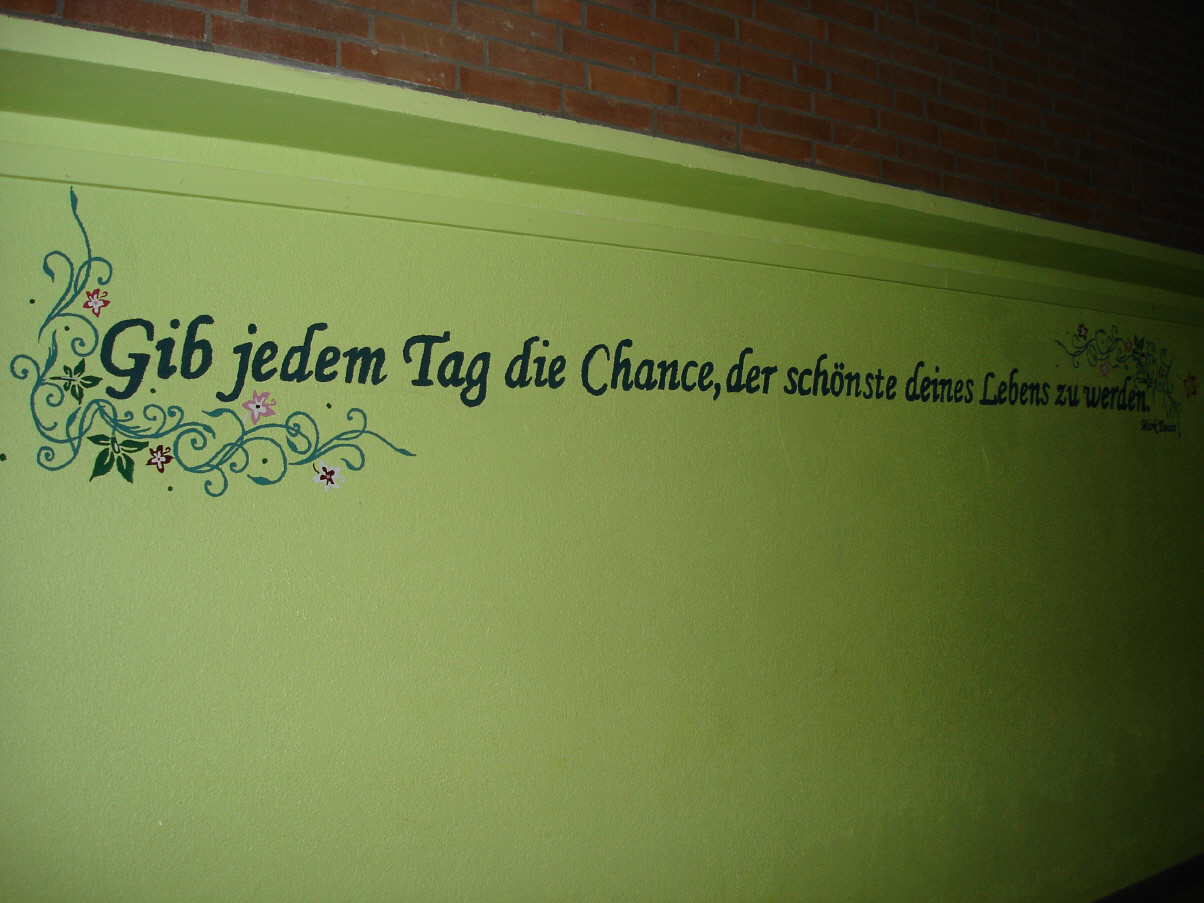 Gib jedem Tag die Chance, der schönste deines Lebens zu werden.
Mark Twain